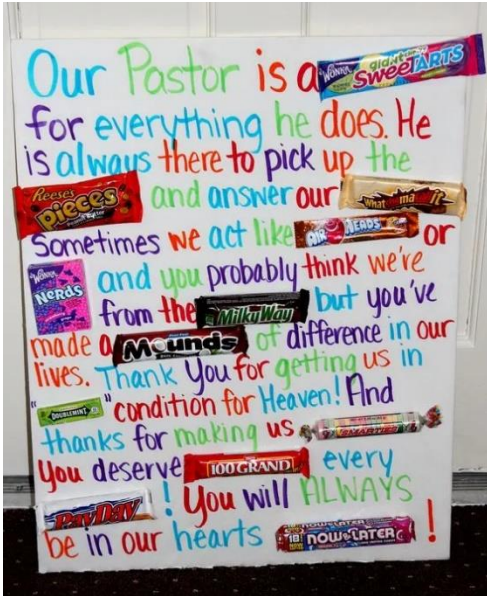 Our Pastor is a WONKA giant chewy SweeTARTS
for everything he does. He
is always there to pick up the
Reese's Pieces and answer our Whatchamacallit
Sometimes we act like AIRHEADS or
WONKA NERDS and you probably think we're
from the Milky Way but you've
made a Mounds of difference in our
lives. Thank You for getting us in
"DOUBLEMINT" condition for Heaven! And
thanks for making us SMARTIES
You deserve 100 GRAND every
PayDay! You will ALWAYS
be in our hearts NOW and LATER!